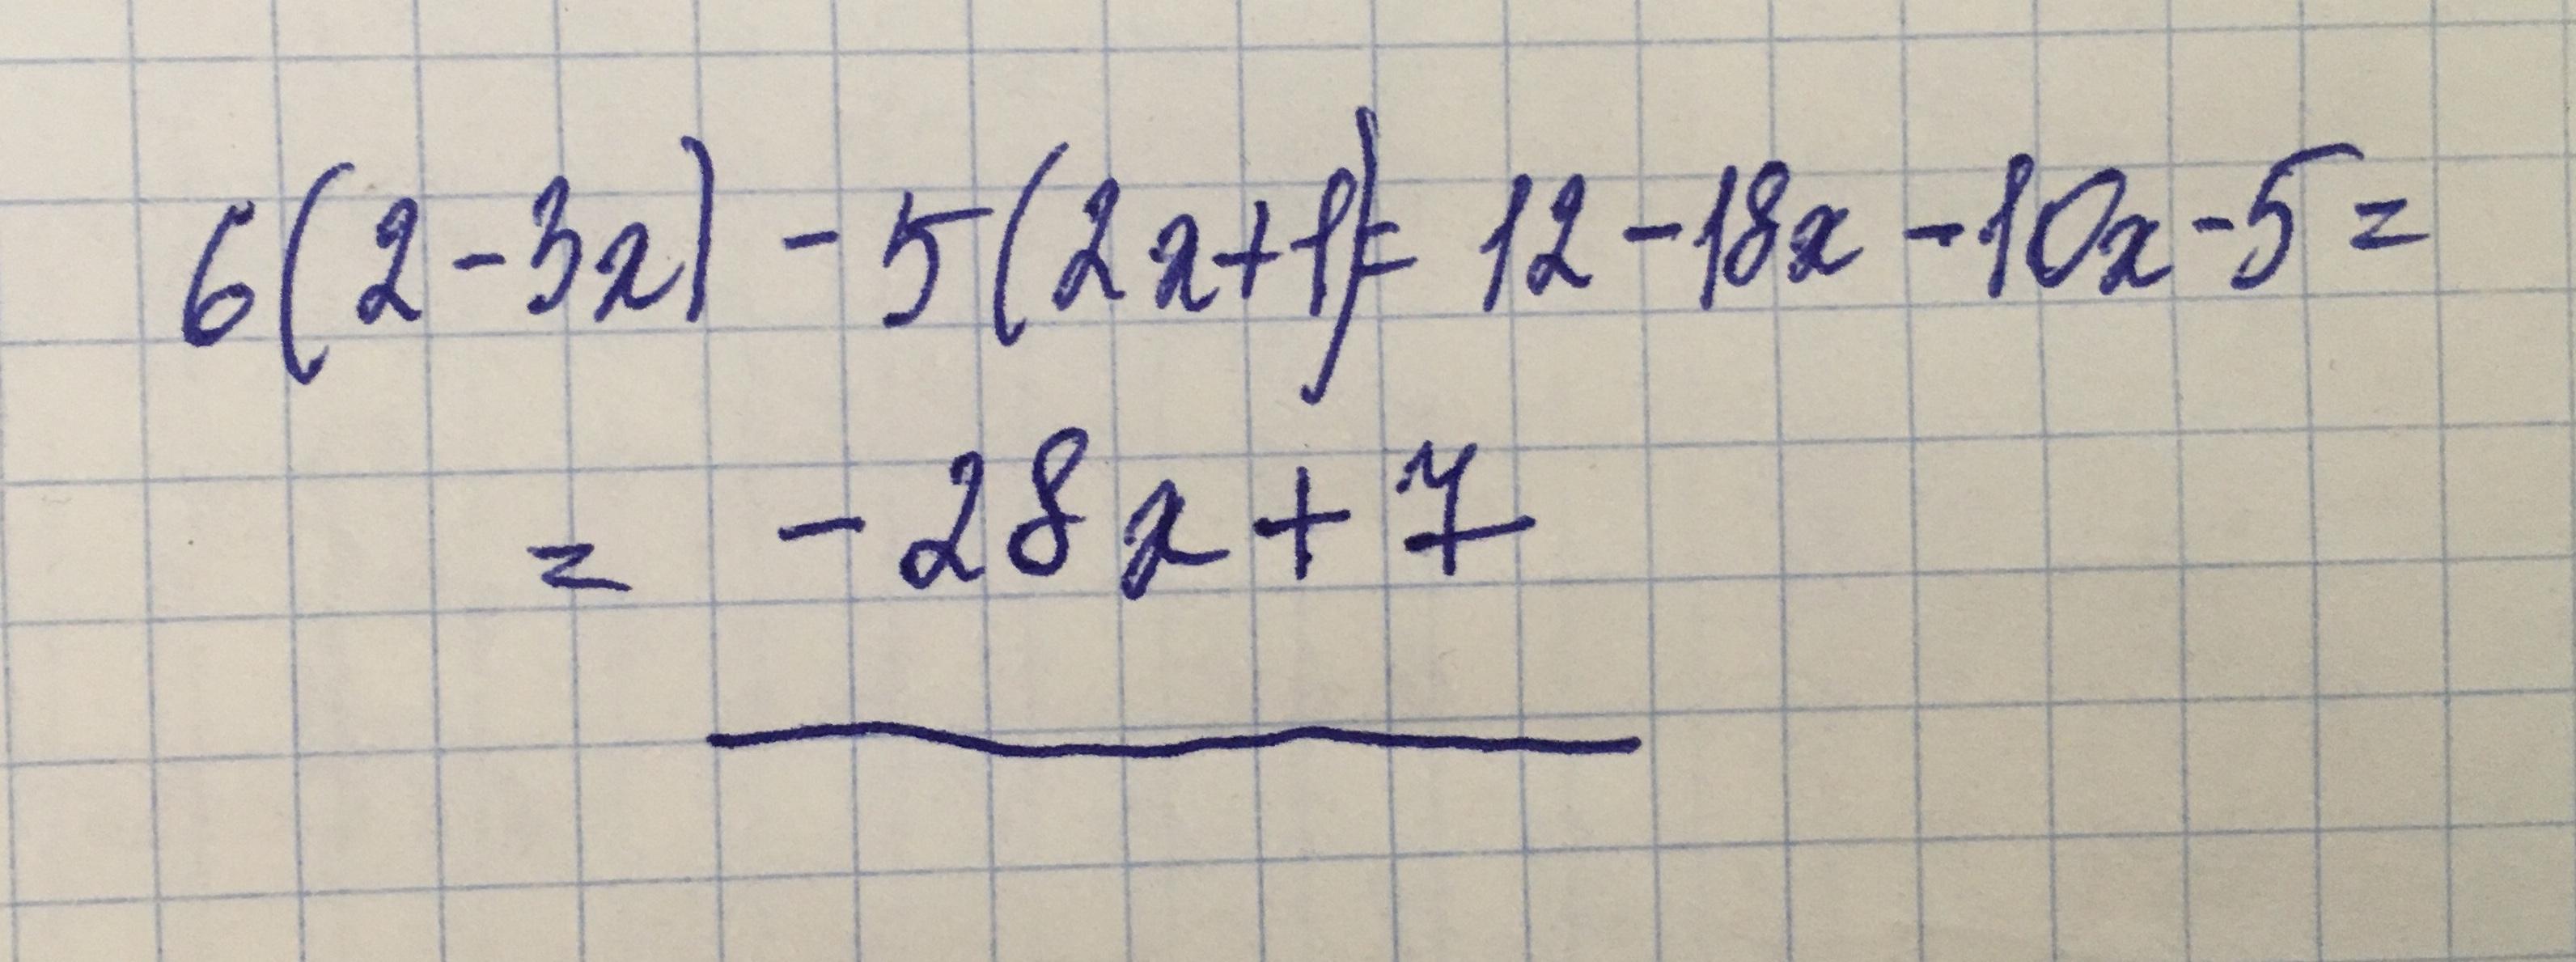 6(2-3x) - 5(2x+1) = 12 - 18x - 10x - 5 =
= -28x + 7